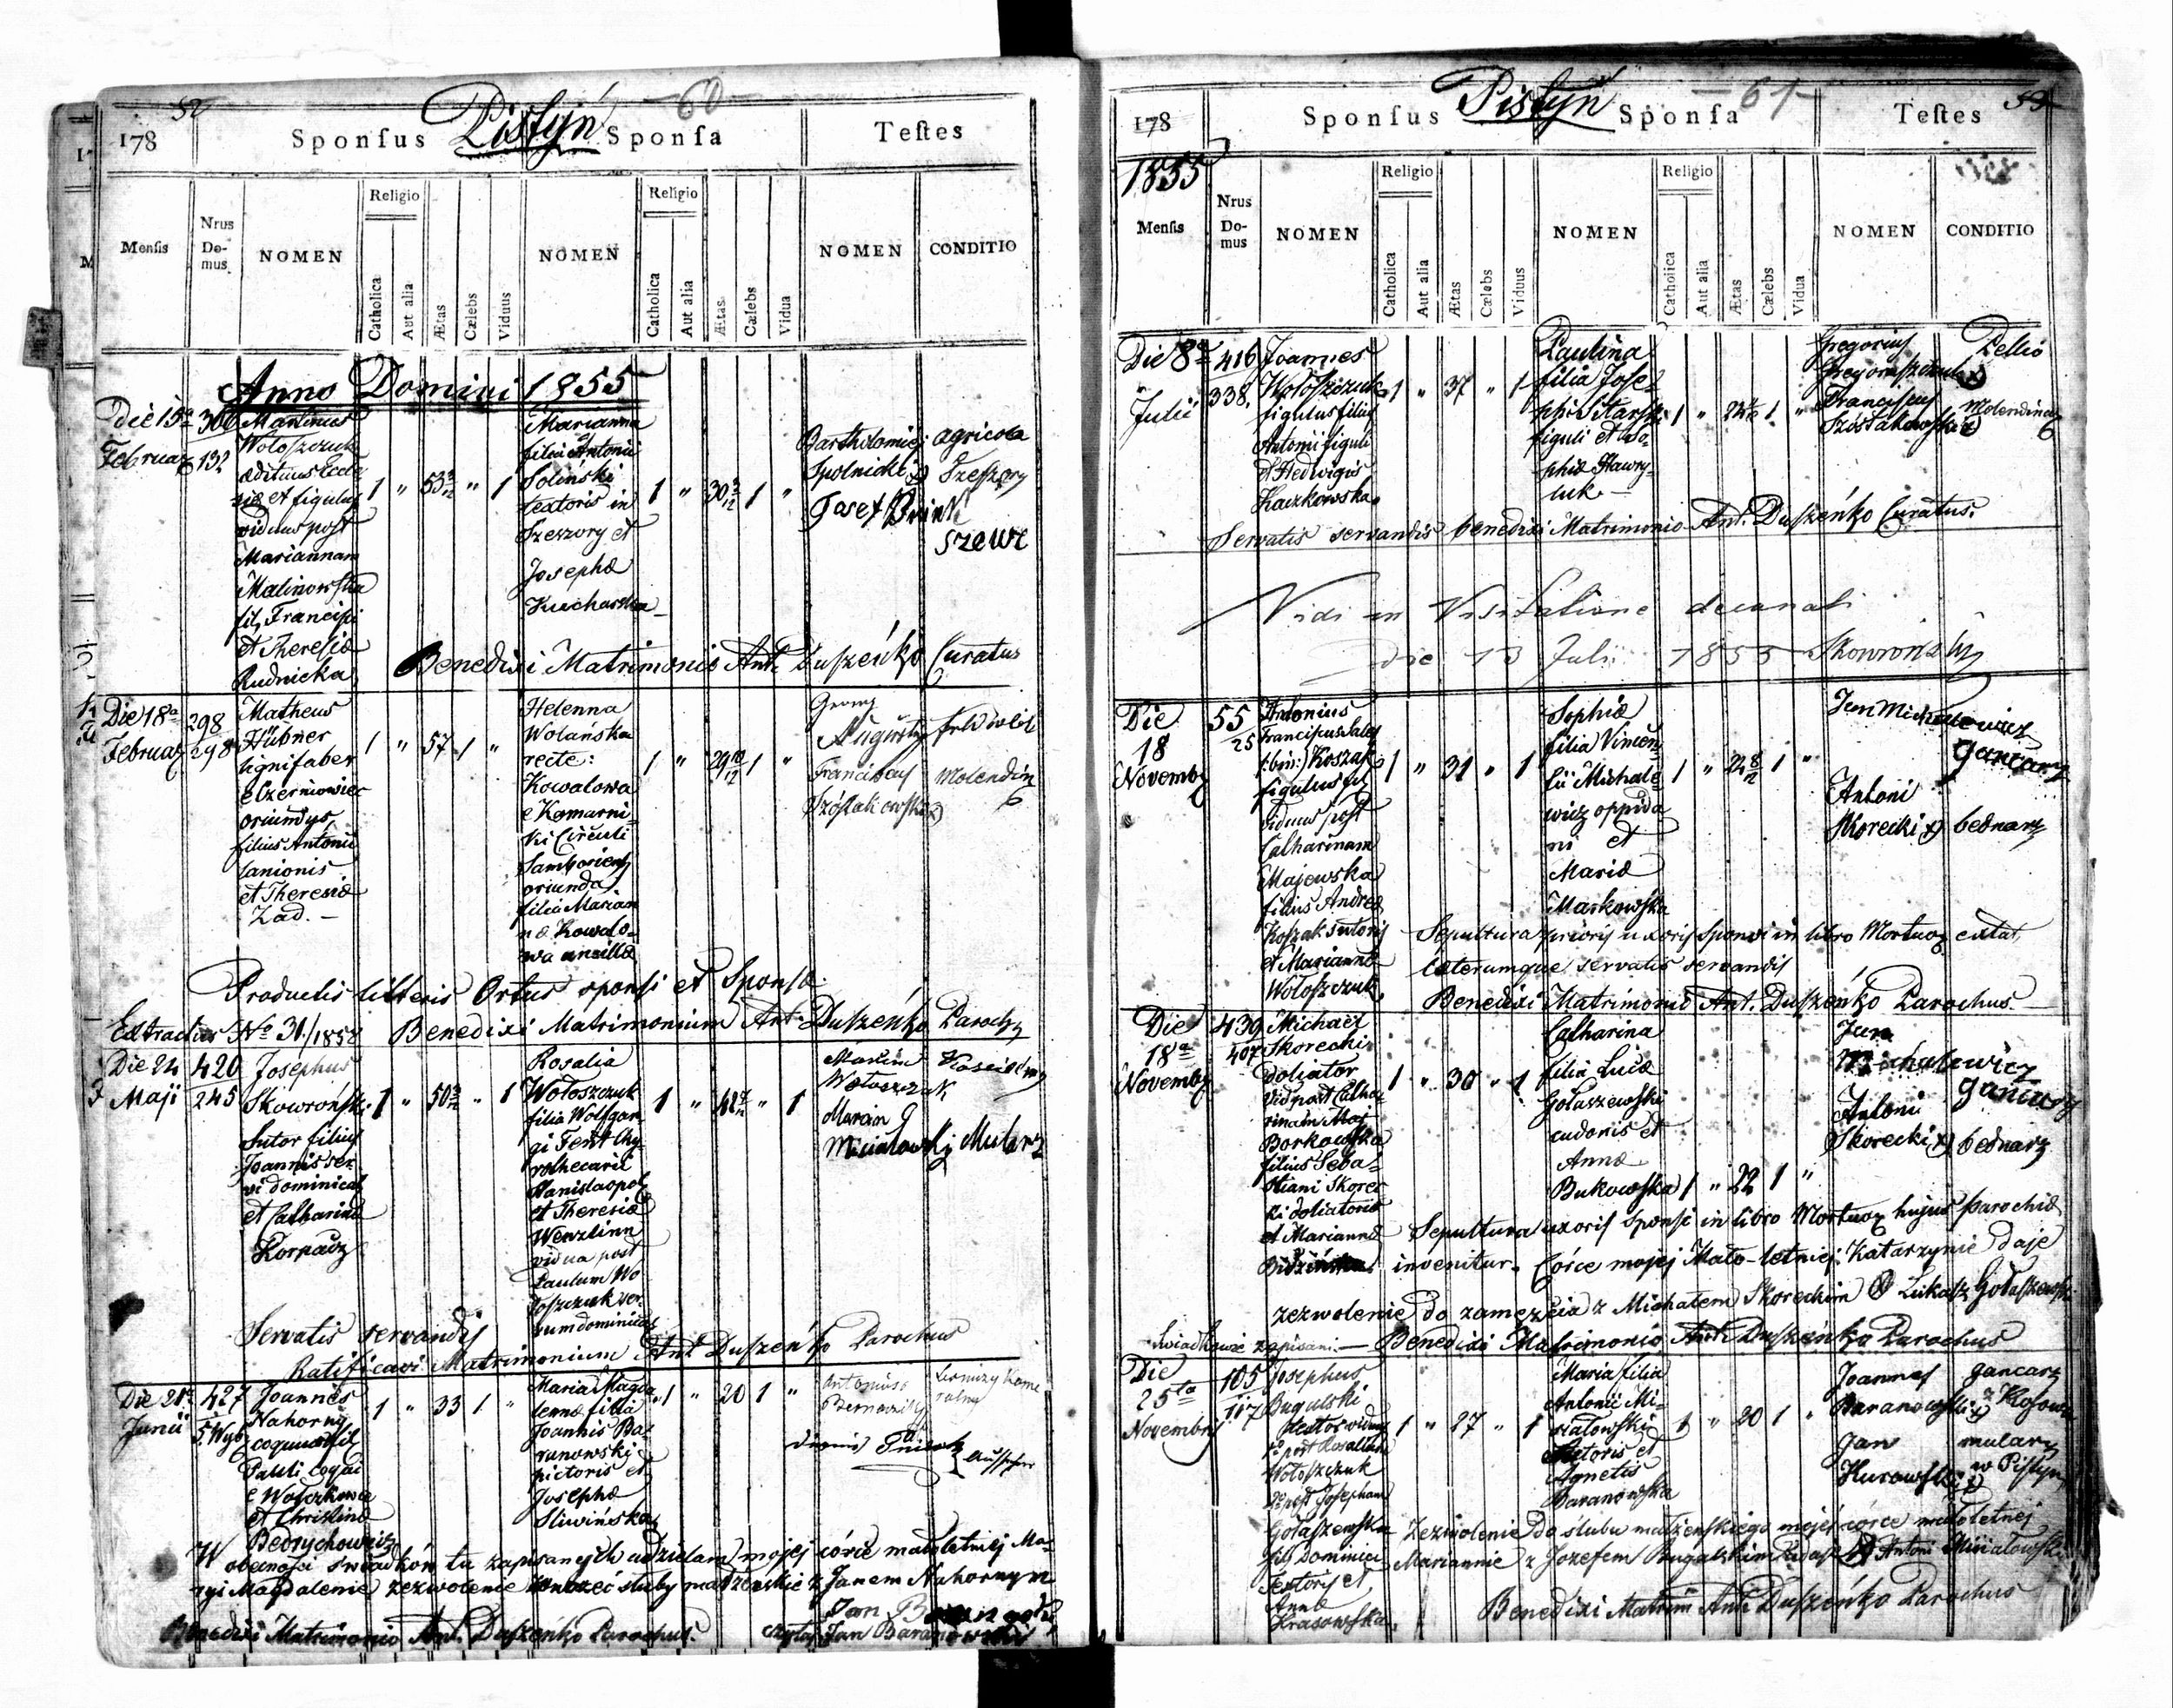 52
Pistyń
60
178
Sponsus
Sponsa
Testes
Mensis
Nrus Domus
NOMEN
Religio
Catholica
Aut alia
Ætas
Cælebs
Viduus
NOMEN
Religio
Catholica
Aut alia
Ætas
Cælebs
Vidua
NOMEN
CONDITIO
Anno Domini 1855
Die 15a
Februar
306
132
Martinus
Wołoszczuk
ædituus Eccle-
siæ et figulus
viduus post
Mariannam
Malinowska
fil, Francisci
et Theresiæ
Rudnicka
1 " 53 " 1
Marianna
filia Antonii
Soliński
textoris in
Szeszory et
Josephæ
Kucharska
1 " 30 1 "
Bartholomiej
Spolnicki
Josef
agricola
Szeszory
szewc
Benedixi Matrimonio Ant. Duszeńko Curatus
Die 18a
Februar
298
298
Matheus
Hübner
lignifaber
e Czerniowiec
oriundus,
filius Antonii
lanionis
et Theresiæ
Zad. —
1 " 57 1 "
Helenna
Wolańska
recte:
Kowalowa
e Komarni-
ki Circuli
Samboriens
oriunda
filia Marian-
næ Kowalo-
wa ancillæ
1 " 29 10/12 1 "
Georg
Augustyn
Franciscus
Szóstakowski
Feldwebel
Molendin
Productis litteris Ortus sponsi et Sponsæ
Extractus No 31/1852 Benedixi Matrimonium Ant. Duszeńko Parochus
Die 24
Maji
420
245
Josephus
Skowroński
Sutor filius
Joannis ser-
vi dominical
et Catharinæ
Kornasz
1 " 50 " 1
Rosalia
Wołoszczuk
filia Wolfgan-
gi Fent
Stanislaopol
et Theresiæ
Wenzlinn
vidua post
Paulum Wo-
łoszczuk ser-
vum dominical
1 " 42 " 1
Marcin
Wołoszczuk
Marcin
Miciałowski
Kościelny
Mularz
Servatis servandis
Ratificavi Matrimonium Ant Duszeńko Parochus
Die 21a
Junii
427
Joannes
Nahorny
coquus fil
Pauli coqui
e Wołczkowce
et Christinæ
Bedrychowicz
1 " 33 1 "
Maria Magda-
lena filia
Joannis Ba-
ranowski
pictoris et
Josephæ
Sliwińska
1 " 20 1 "
Antonius
W obecności świadków tu zapisanych udzielam mojej córce małoletniej Ma-
ryi Magdalenie zezwolenie zawrzeć śluby małżeńskie z Janem Nahornym
Jan Baranowski
Benedixi Matrimonio Ant. Duszeńko Parochus.
Jan Baranowski
53
Pistyń
61
178
Sponsus
Sponsa
Testes
1855
Mensis
Nrus Domus
NOMEN
Religio
Catholica
Aut alia
Ætas
Cælebs
Viduus
NOMEN
Religio
Catholica
Aut alia
Ætas
Cælebs
Vidua
NOMEN
CONDITIO
Die 8a
Julii
416
338.
Joannes
Wołoszczuk
figulus filius
Antonii figuli
et Hedwigis
Kaczkowska
1 " 37 " 1
Paulina
filia Jose-
phi Sitarski
figuli et So-
phiæ Hawry-
luk —
1 " 24 1 "
Gregorius
Gregoraszczuk
Franciscus
Szóstakowski
Pellio
Molendina
Servatis servandis benedixi Matrimonio Ant. Duszeńko Curatus.
Vidi in Visitatione decanali
die 13 Julii 1855 Skowroński
Die
18
Novemb
55
25
Antonius
Franciscus Sales
(:bin:) Koszak
figulus
viduus post
Catharinam
Majewska
filius Andreæ
Koszak sutoris
et Mariannæ
Wołoszczuk
1 " 31 " 1
Sophia
filia Vincen-
tii Michale-
wicz oppida-
ni et
Mariæ
Markowska
1 " 24 8/12 1 "
Jan Michalewicz
Gancarz
Antoni
Skorecki
bednarz
Sepultura prioris uxoris sponsi in libro Mortuor extat,
cæterumque servatis servandis
Benedixi Matrimonio Ant. Duszeńko Parochus.
Die
18a
Novemb
439
407
Michael
Skorecki
doliator
vid post Catha-
rinam Maj
Borkowska
filius Seba-
stiani Skorec-
ki doliatoris
et Mariannæ
1 " 30 " 1
Catharina
filia Lucæ
Gołaszewski
cudonis et
Annæ
Bukowska
1 " 22 1 "
Jan
Michalewicz
Gancarz
Antoni
Skorecki
bednarz
Sepultura uxoris sponsi in libro Mortuor hujus Parochiæ
invenitur. Córce mojej Mało-letniej Katarzynie daje
zezwolenie do zamęzcia z Michałem Skoreckim Łukasz Gołaszewski
świadkowie zapisani. — Benedixi Matrimonio Ant. Duszeńko Parochus
Die
25ta
Novembris
105
117
Josephus
Bugalski
textor viduus
1o post Rosaliam
Wołoszczuk
2o post Josepham
Gołaszewska
fil, Dominici
textoris et
Annæ
Krasowska.
1 " 27 " 1
Maria filia
Antonii Mi-
ciałowski
sutoris et
Agnetis
Baranowska
1 " 20 1 "
Joannes
Baranowski
Jan
Hurowski
gancarz
z Kosowa
mularz
w Pistyn
Zezwolenie do ślubu małżeńskiego mojéj córce małoletnej
Mariannie z Jozefem Bugalskim Antoni Miciałowski
Benedixi Matrim Ant Duszeńko Parochus